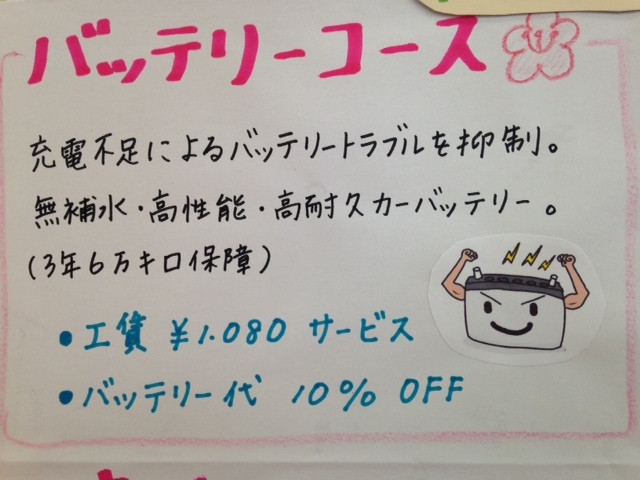 バッテリーコース
充電不足によるバッテリートラブルを抑制。
無補水・高性能・高耐久カーバッテリー。
(3年6万キロ保障)
• 工賃 ¥1.080 サービス
• バッテリー代 10% OFF